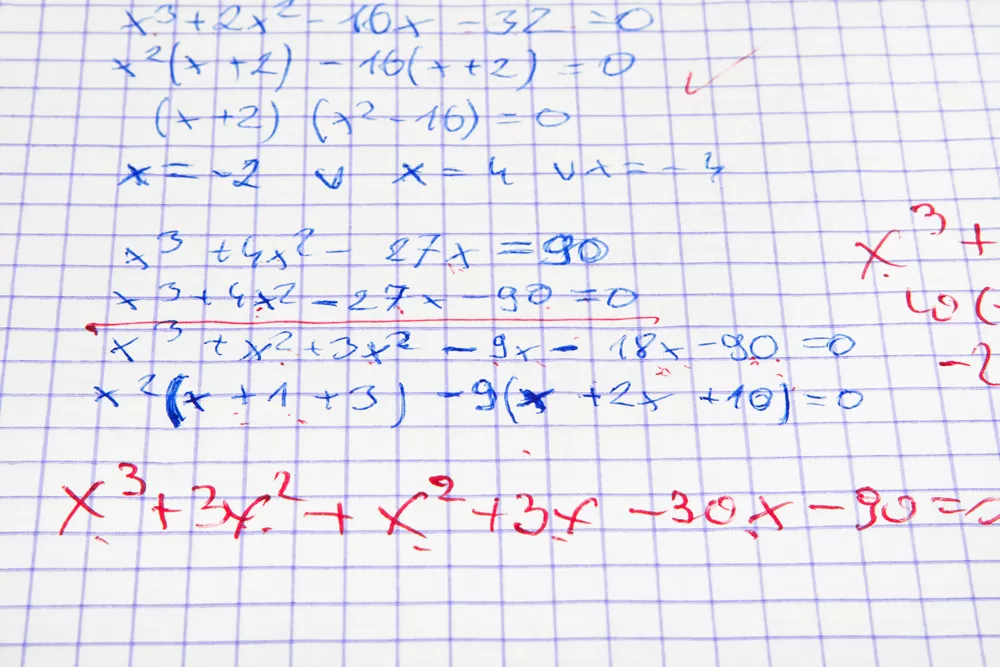 x³ + 2x² - 16x - 32 = 0
x²(x + 2) - 16(x + 2) = 0
(x + 2) (x² - 16) = 0
x = -2 v x = 4 v x = -4
x³ + 4x² - 27x = 90
x³ + 4x² - 27x - 90 = 0
x³ + x² + 3x² - 9x - 18x - 90 = 0
x²(x + 1 + 3) - 9(x + 2x + 10) = 0
x³ + 3x² + x² + 3x - 30x - 90 =
x³ +
40(
-2